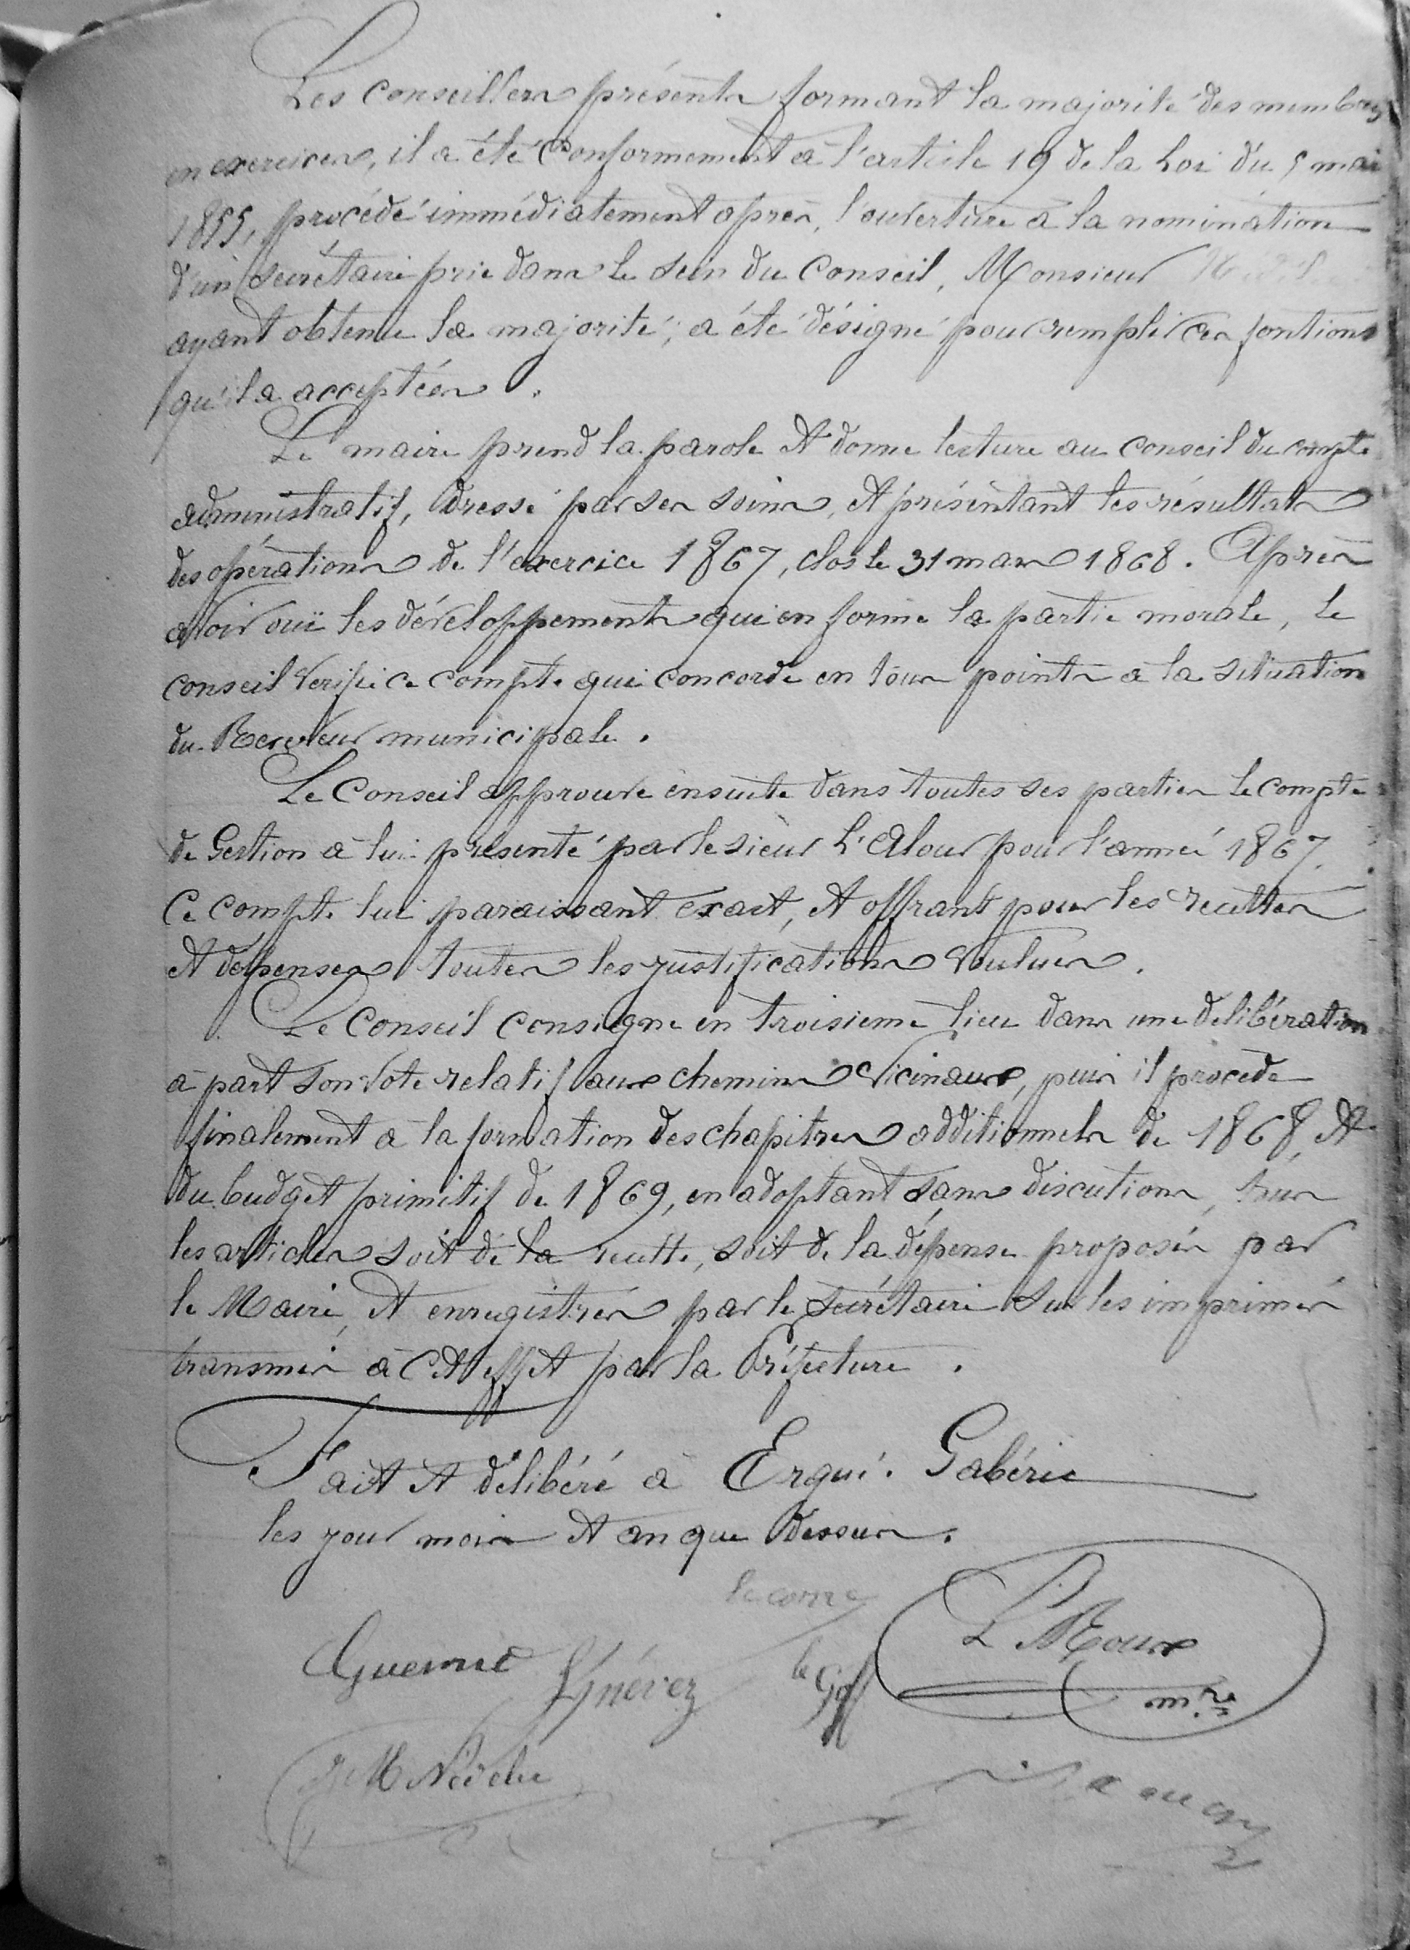 Les conseillers présents formant la majorité des membres
en exercices, il a été conformement à l'article 19 de la Loi du 5 mai
1855, procédé immédiatement après, l'ouverture à la nomination
d'un secrétaire pris dans le sein du Conseil, Monsieur
ayant obtenu la majorité, a été désigné pour remplir ces fontions
qu'il a acceptées.
Le maire prend la parole et donne lecture au conseil du compte
administratif, dressé par ses soins, et présentant les résultats
des opérations de l'exercice 1867, clos le 31 mars 1868. Après
avoir ouï les développements qui en forme la partie morale, le
conseil verifie ce compte qui concorde en tous points à la situation
du Receveur municipale.
Le Conseil approuve ensuite dans toutes ses parties le compte
de Gestion à lui présenté par le sieur L'Alour pour l'année 1867.
Ce compte lui paraissant exact, et offrant pour les recettes
et dépenses toutes les justifications voulues.
Le Conseil consigne en troisieme lieu dans une delibération
à part son vote relatif aux chemins vicinaux, puis il procède
finalement à la formation des chapitres additionnels de 1868, et
du budget primitif de 1869, en adoptant sans discutions, tous
les articles soit de la recette, soit de la dépense proposés par
le Maire, et enregistrés par le secrétaire sur les imprimés
transmis à cet effet par la Préfecture.
Fait et délibéré à Ergué-Gabéric
les jour mois et an que dessus.
le corre
L. Roux
Guennec Gnévez le Goff
mre
JM Nédelec